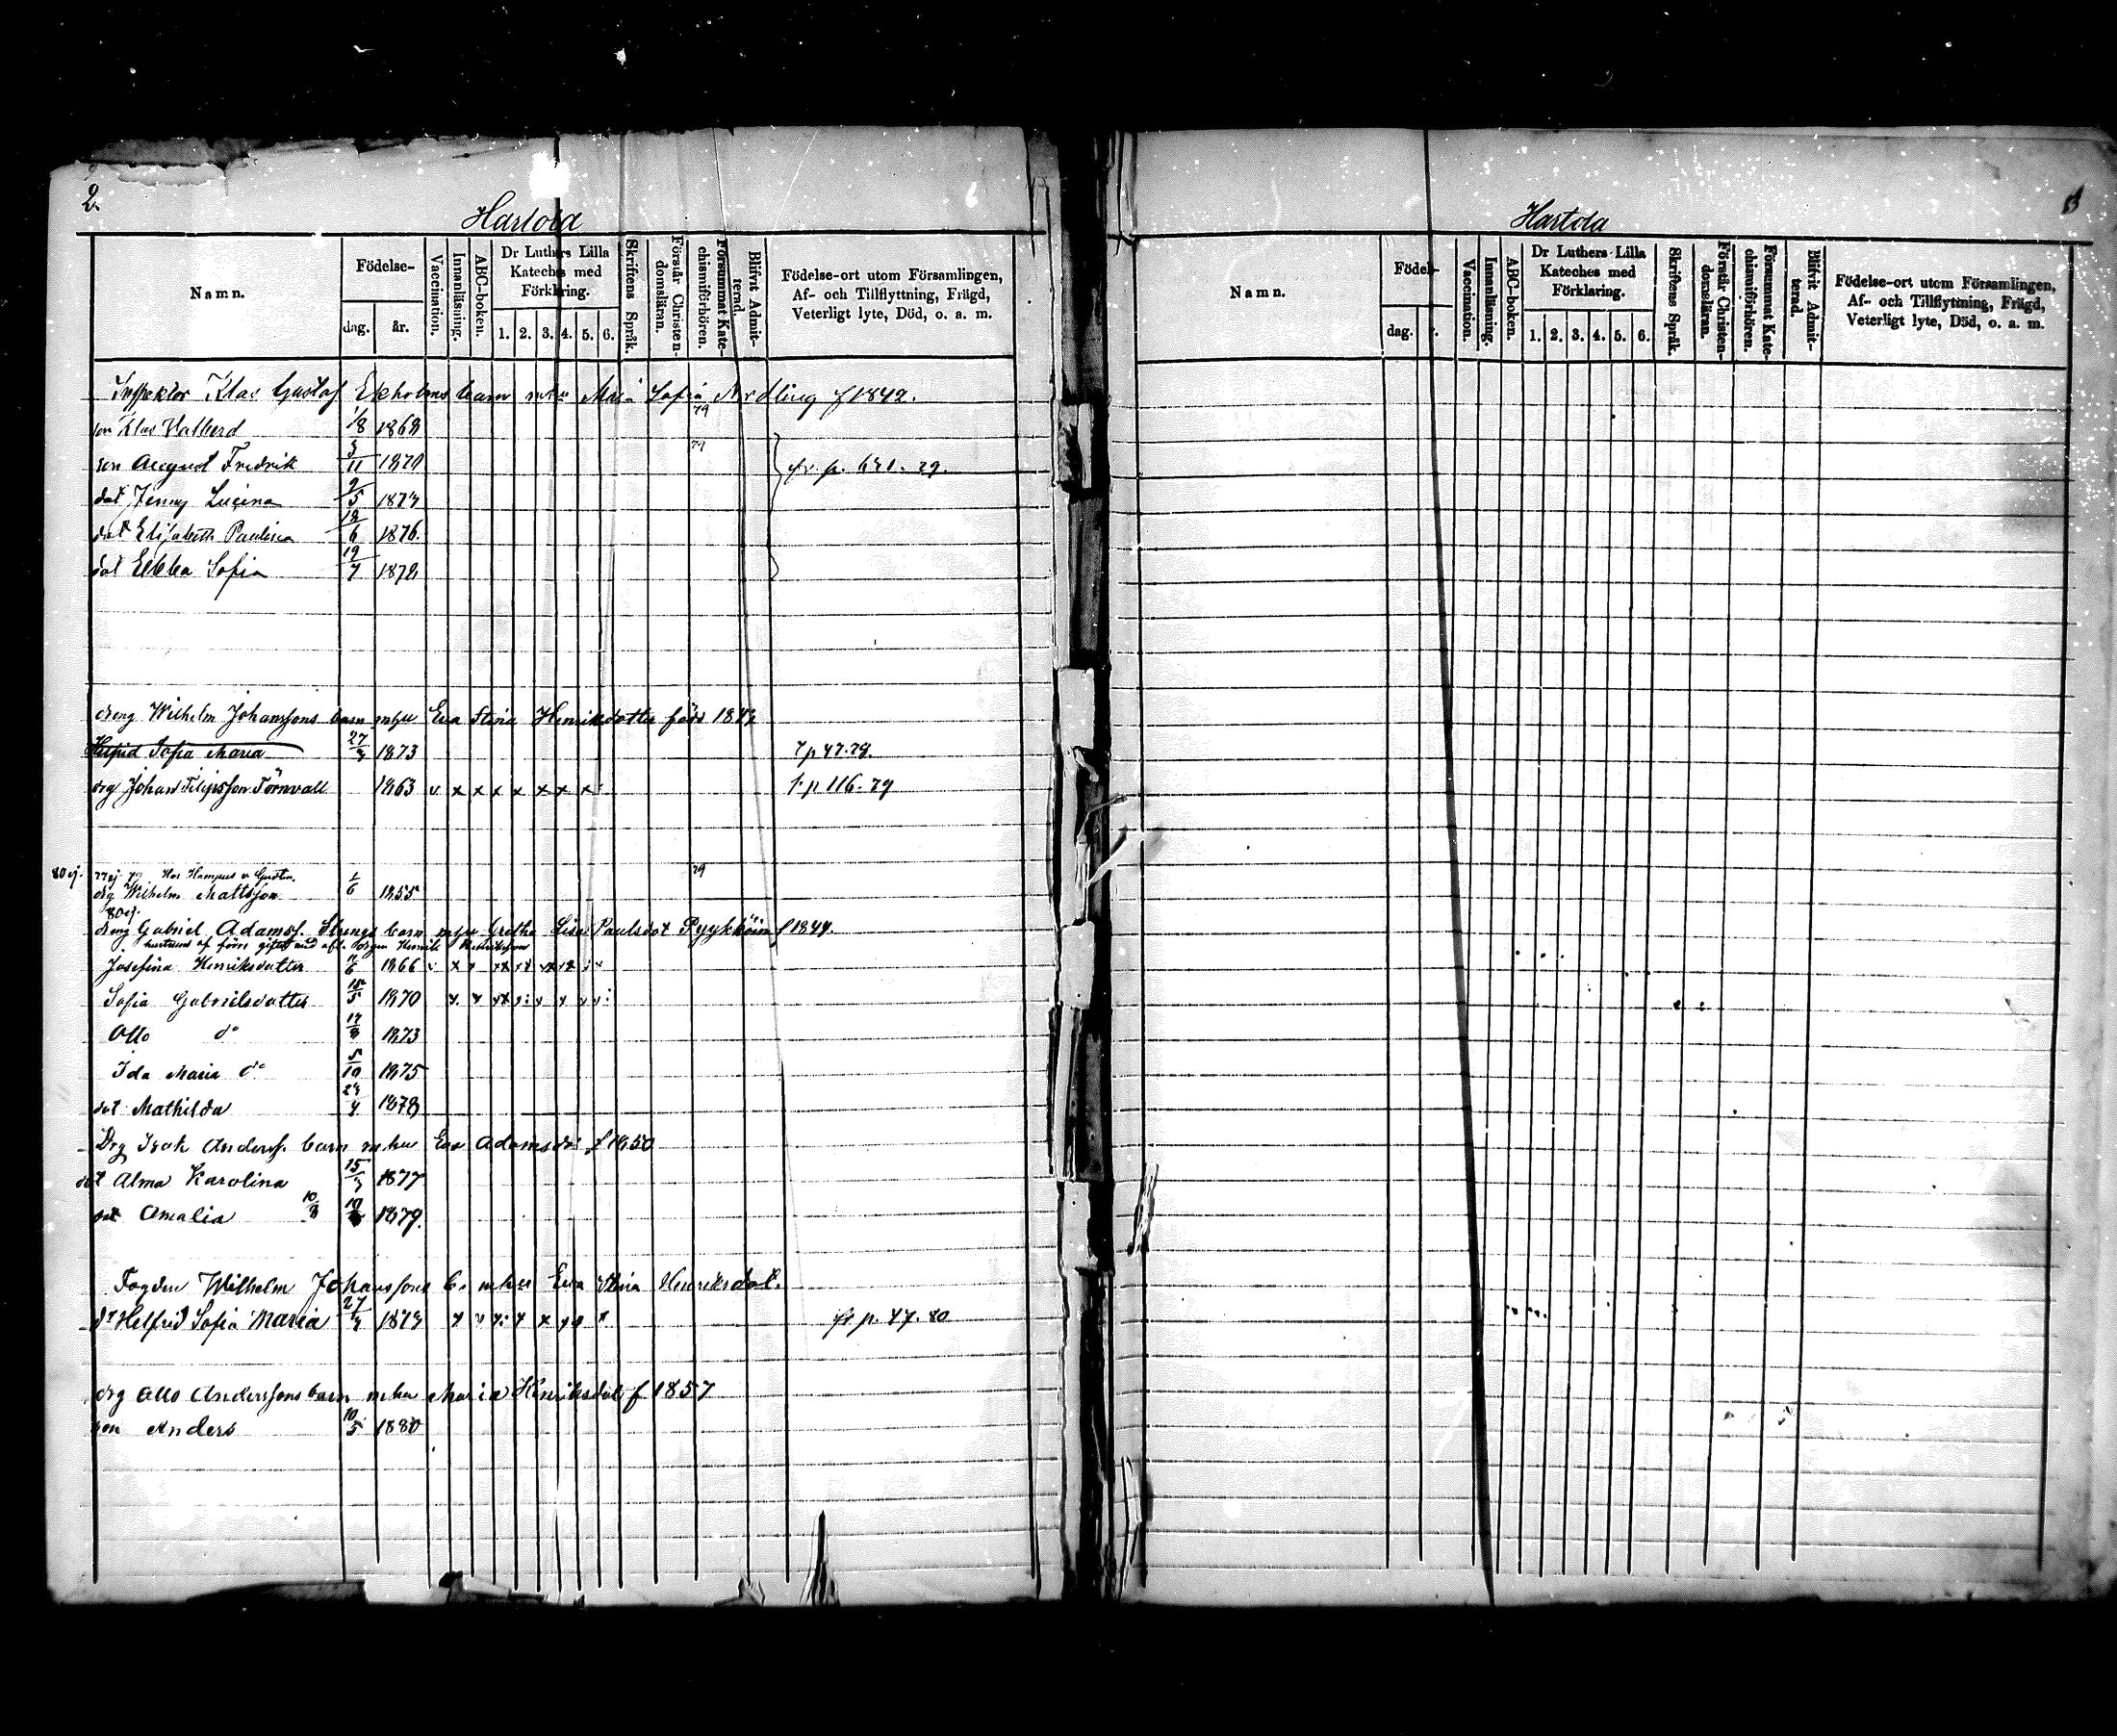 2.
Hartola
Namn.
Födelse-
dag.
år.
Vaccination.
Innanläsning.
ABC-boken.
Dr Luthers Lilla
Kateches med
Förklaring.
1. 2. 3. 4. 5. 6.
Skriftens Språk.
Förstår Christen-
domsläran.
Försummat Kate-
chismiförhören.
Blifvit Admit-
terad.
Födelse-ort utom Församlingen,
Af- och Tillflyttning, Frägd,
Veterligt lyte, Död, o. a. m.
Inspektor Klas Gustaf Ekholms barn Maria Sofia Nordling f 1842.
son Klas Valherd 1/8 1868 79
son August Fredrik 3/11 1870 79 fr. p. 29.
dot Jenny Lucina 9/5 1873
dot Elisabeth Paulina 18/6 1876.
dot Ebba Sofia 19/7 1878
dreng Wilhelm Johanssons barn mhu Eva Stina Henriksdotter född
Helfrid Sofia Maria 27/3 1873 p 47.79.
drg Johan Filipsson Törnvall 1863 v x x x x x x x p 116.79
80 ej. 79
drg Wilhelm Mattsson 1/6 1855
80 ej.
dreng Gabriel Adamsf. Strengs barn mhu Gretha Lisa Paulsdot f
hustrun af förre gift med Henrik Henriksson
Josefina Henriksdotter 1866
Sofia Gabrielsdotter 15/5 1870
Otto do 17/8 1873
Ida Maria do 5/10 1875
dot Mathilda 1878
Drg Isak Andersf. barn mhu Eva Adamsdr f 1850
dot Alma Karolina 15/3 1877
dot Amalia 10/8 10 1879.
Fogden Wilhelm Johanssons b. mhu Eva Stina Henriksdot.
dr Helfrid Sofia Maria 27/3 1873 fr p. 47. 80
drg Otto Anderssons barn mhu Maria Henriksdot f 1857
son Anders 10/5 1880
Hartola
3
Namn.
Födel-
dag.
Vaccination.
Innanläsning.
ABC-boken.
Dr Luthers Lilla
Kateches med
Förklaring.
1. 2. 3. 4. 5. 6.
Skriftens Språk.
Förstår Christen-
domsläran.
Försummat Kate-
chismiförhören.
Blifvit Admit-
terad.
Födelse-ort utom Församlingen,
Af- och Tillflyttning, Frägd,
Veterligt lyte, Död, o. a. m.